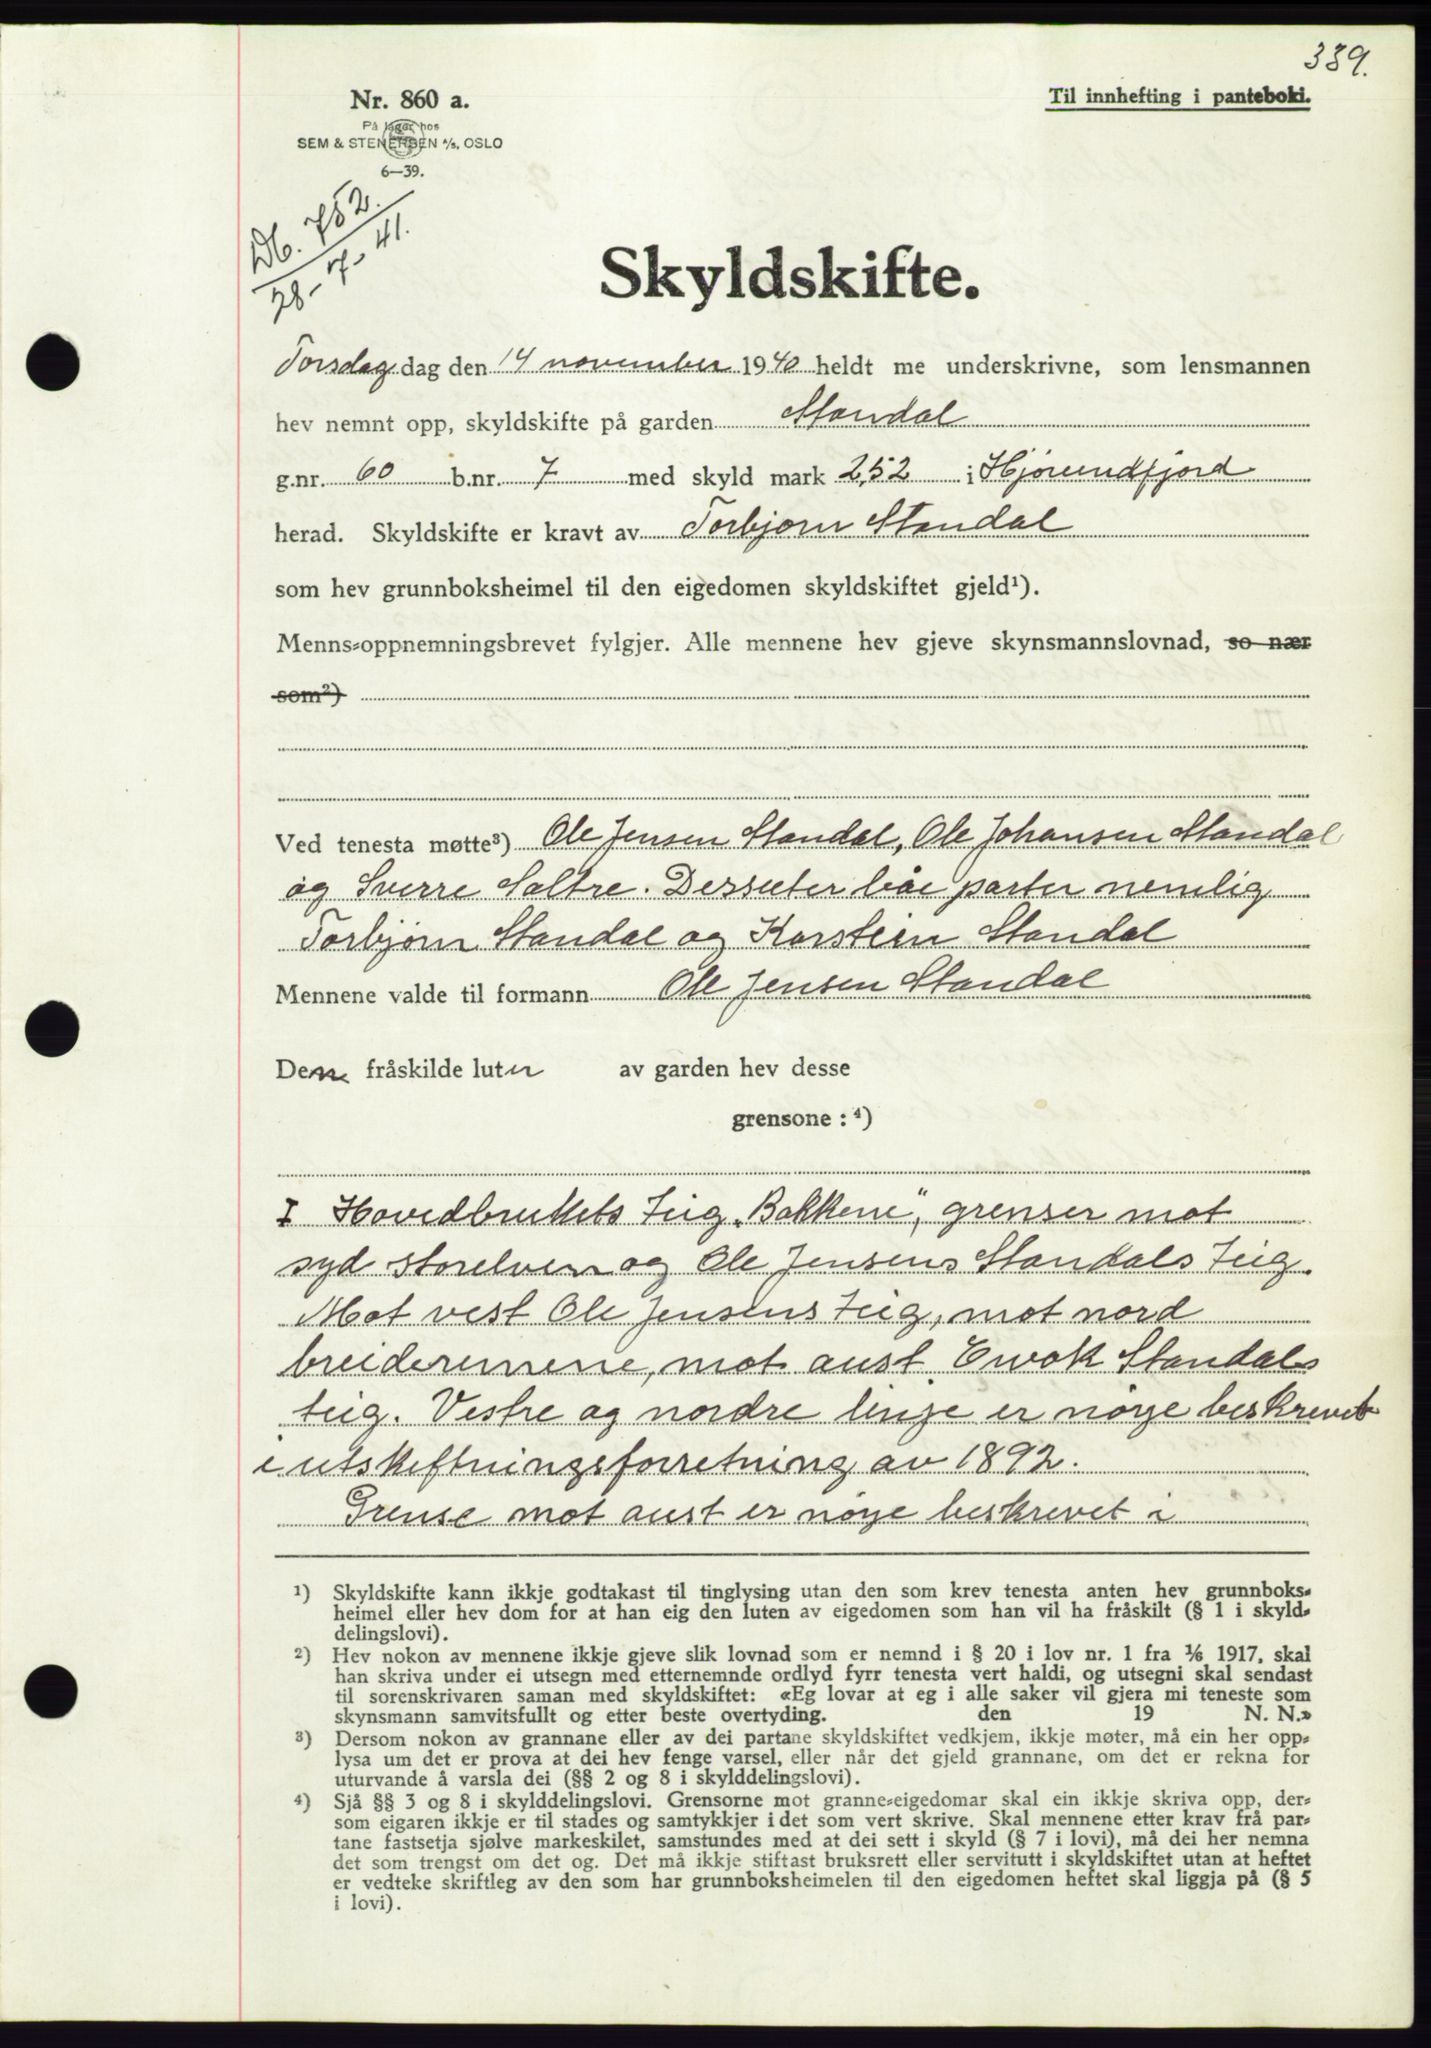 339.
Nr. 860 a.
Til innhefting i panteboki.
På lager hos
SEM & STENERSEN A/S, OSLO
6—39.
Db. 752.
28-7-41.
Skyldskifte.
Torsdag dag den 14 november 1940 heldt me underskrivne, som lensmannen
hev nemnt opp, skyldskifte på garden Standal
g.nr. 60 b.nr. 7 med skyld mark 2,52 i Hjørundfjord
herad. Skyldskifte er kravt av Torbjørn Standal
som hev grunnboksheimel til den eigedomen skyldskiftet gjeld¹).
Menns-oppnemningsbrevet fylgjer. Alle mennene hev gjeve skynsmannslovnad, so nær
som²)
Ved tenesta møtte³) Ole Jensen Standal, Ole Johansen Standal
og Sverre Saltre. Dessuten båe parter nemlig
Torbjørn Standal og Karstein Standal
Mennene valde til formann Ole Jensen Standal
Den fråskilde luten av garden hev desse
grensone: ⁴)
I Hovedbrukets teig „Bakkene", grenser mot
syd storelven og Ole Jensens Standals teig.
Mot vest Ole Jensens teig, mot nord
mot aust Standals
teig. Vestre og nordre linje er nøye beskrevet
i utskiftningsforretning av 1892.
Grense mot aust er nøye beskrevet i
¹) Skyldskifte kann ikkje godtakast til tinglysing utan den som krev tenesta anten hev grunnboks-
heimel eller hev dom for at han eig den luten av eigedomen som han vil ha fråskilt (§ 1 i skyld-
delingslovi).
²) Hev nokon av mennene ikkje gjeve slik lovnad som er nemnd i § 20 i lov nr. 1 fra 1/6 1917, skal
han skriva under ei utsegn med etternemnde ordlyd fyrr tenesta vert haldi, og utsegni skal sendast
til sorenskrivaren saman med skyldskiftet: «Eg lovar at eg i alle saker vil gjera mi teneste som
skynsmann samvitsfullt og etter beste overtyding. den 19 N. N.»
³) Dersom nokon av grannane eller av dei partane skyldskiftet vedkjem, ikkje møter, må ein her opp-
lysa um det er prova at dei hev fenge varsel, eller når det gjeld grannane, om det er rekna for
uturvande å varsla dei (§§ 2 og 8 i skylddelingslovi).
⁴) Sjå §§ 3 og 8 i skylddelingslovi. Grensorne mot granne-eigedomar skal ein ikkje skriva opp, der-
som eigaren ikkje er til stades og samtykkjer i det som vert skrive. Skal mennene etter krav frå par-
tane fastsetja sjølve markeskilet, samstundes med at dei sett i skyld (§ 7 i lovi), må dei her nemna
det som trengst om det og. Det må ikkje stiftast bruksrett eller servitutt i skyldskiftet utan at heftet
er vedteke skriftleg av den som har grunnboksheimelen til den eigedomen heftet skal liggja på (§ 5
i lovi).